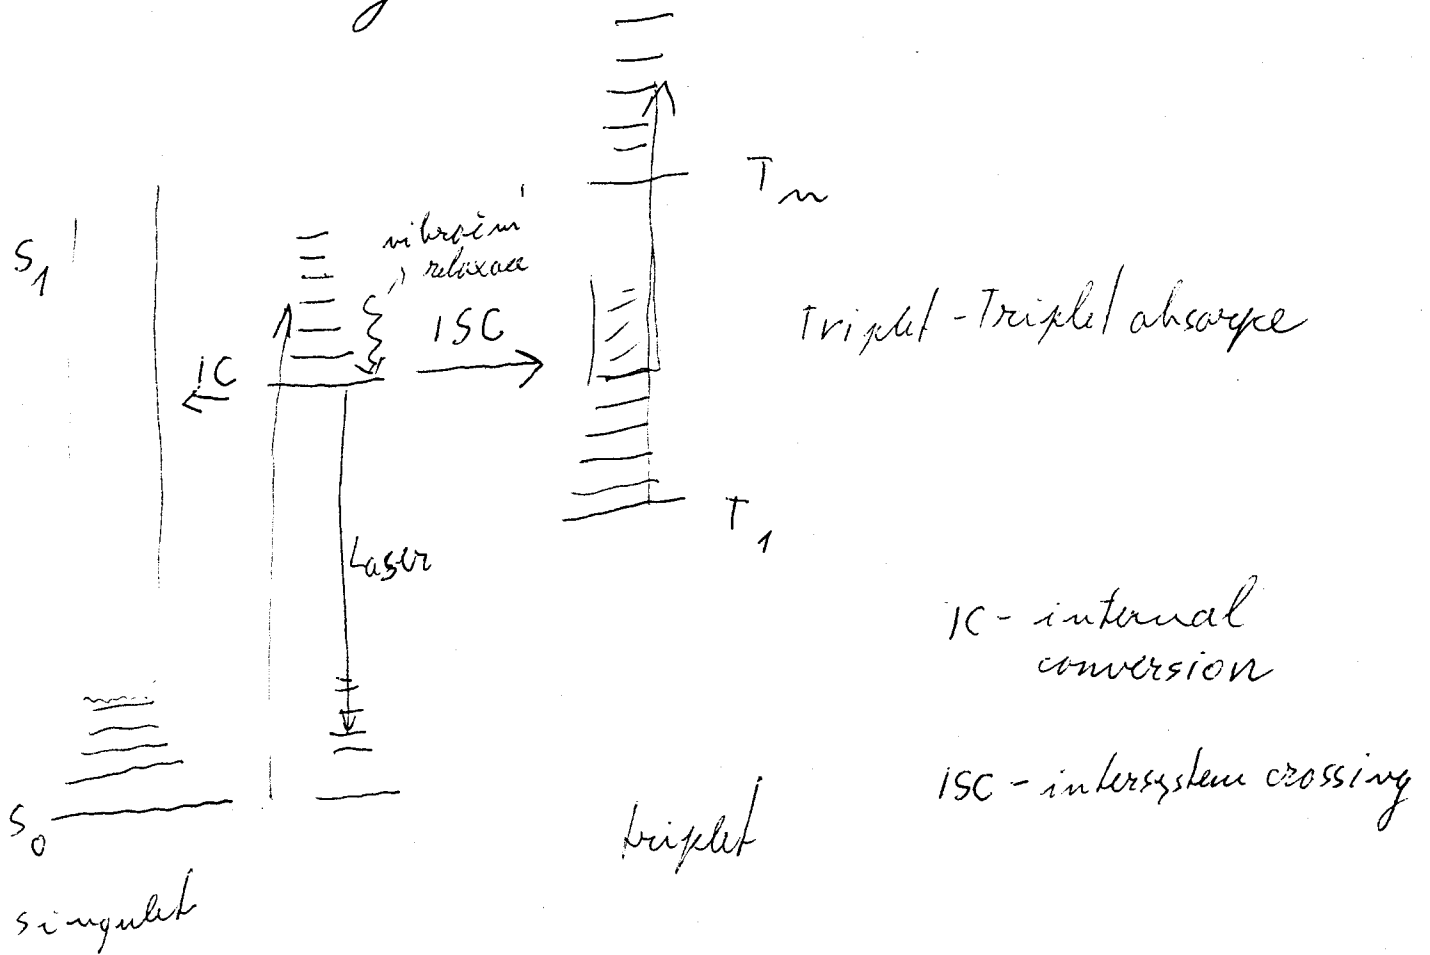 T n
S 1
vibrační
relaxace
ISC
Triplet - Triplet absorpce
IC
T 1
Laser
IC - internal
conversion
ISC - intersystem crossing
S 0
triplet
singulet